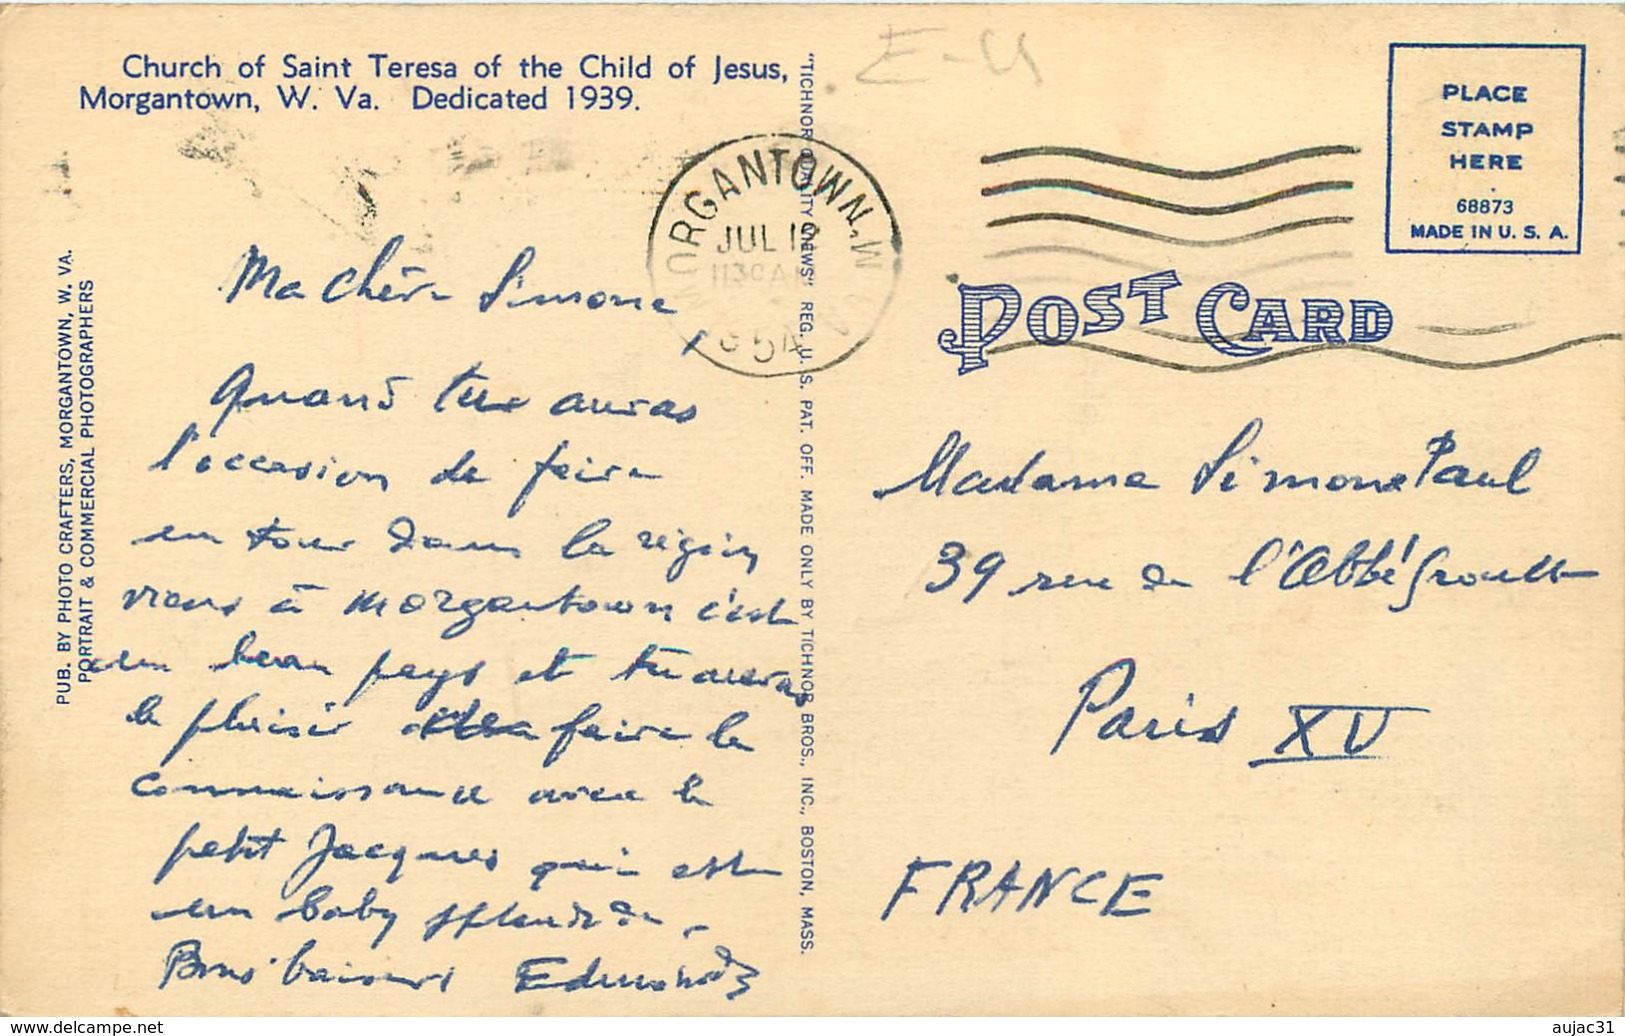 Church of Saint Teresa of the Child of Jesus,
Morgantown, W. Va. Dedicated 1939.
E-U
PUB. BY PHOTO CRAFTERS, MORGANTOWN, W. VA.
PORTRAIT & COMMERCIAL PHOTOGRAPHERS
MORGANTOWN, W. VA.
JUL 19
1130 AM
1954
Ma Chère Simone,
Quand tu auras
l'occasion de faire
un tour dans la région
viens à Morgantown c'est
un beau pays et tu auras
le plaisir de faire la
connaissance avec le
petit Jacques qui est
un baby splendide.
Bons baisers Edmond
"TICHNOR QUALITY VIEWS" REG. U. S. PAT. OFF. MADE ONLY BY TICHNOR BROS., INC., BOSTON, MASS.
PLACE
STAMP
HERE
68873
MADE IN U. S. A.
POST CARD
Madame Simone Paul
39 rue de l'Abbé Groult
Paris XV
FRANCE
https://www.delcampe.net
aujac31